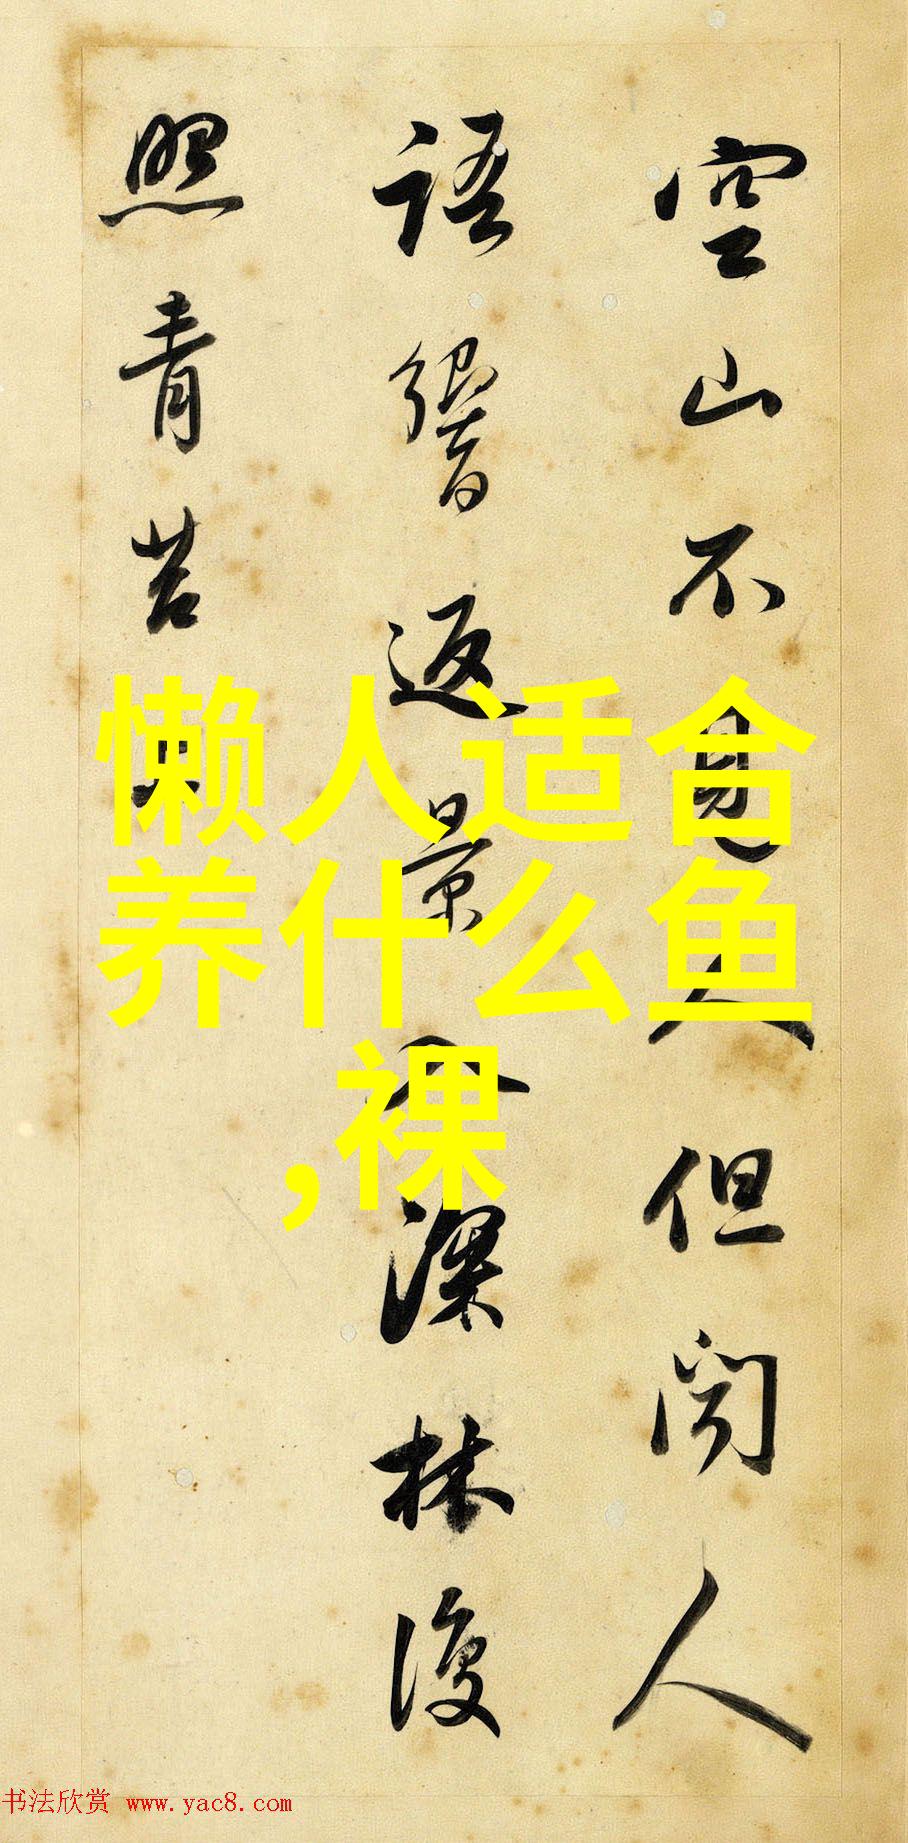 空山不見人但聞人
語響返景入深林復
照青苔上
懒人适合
养什么鱼
,裸
书法欣赏 www.yac8.com